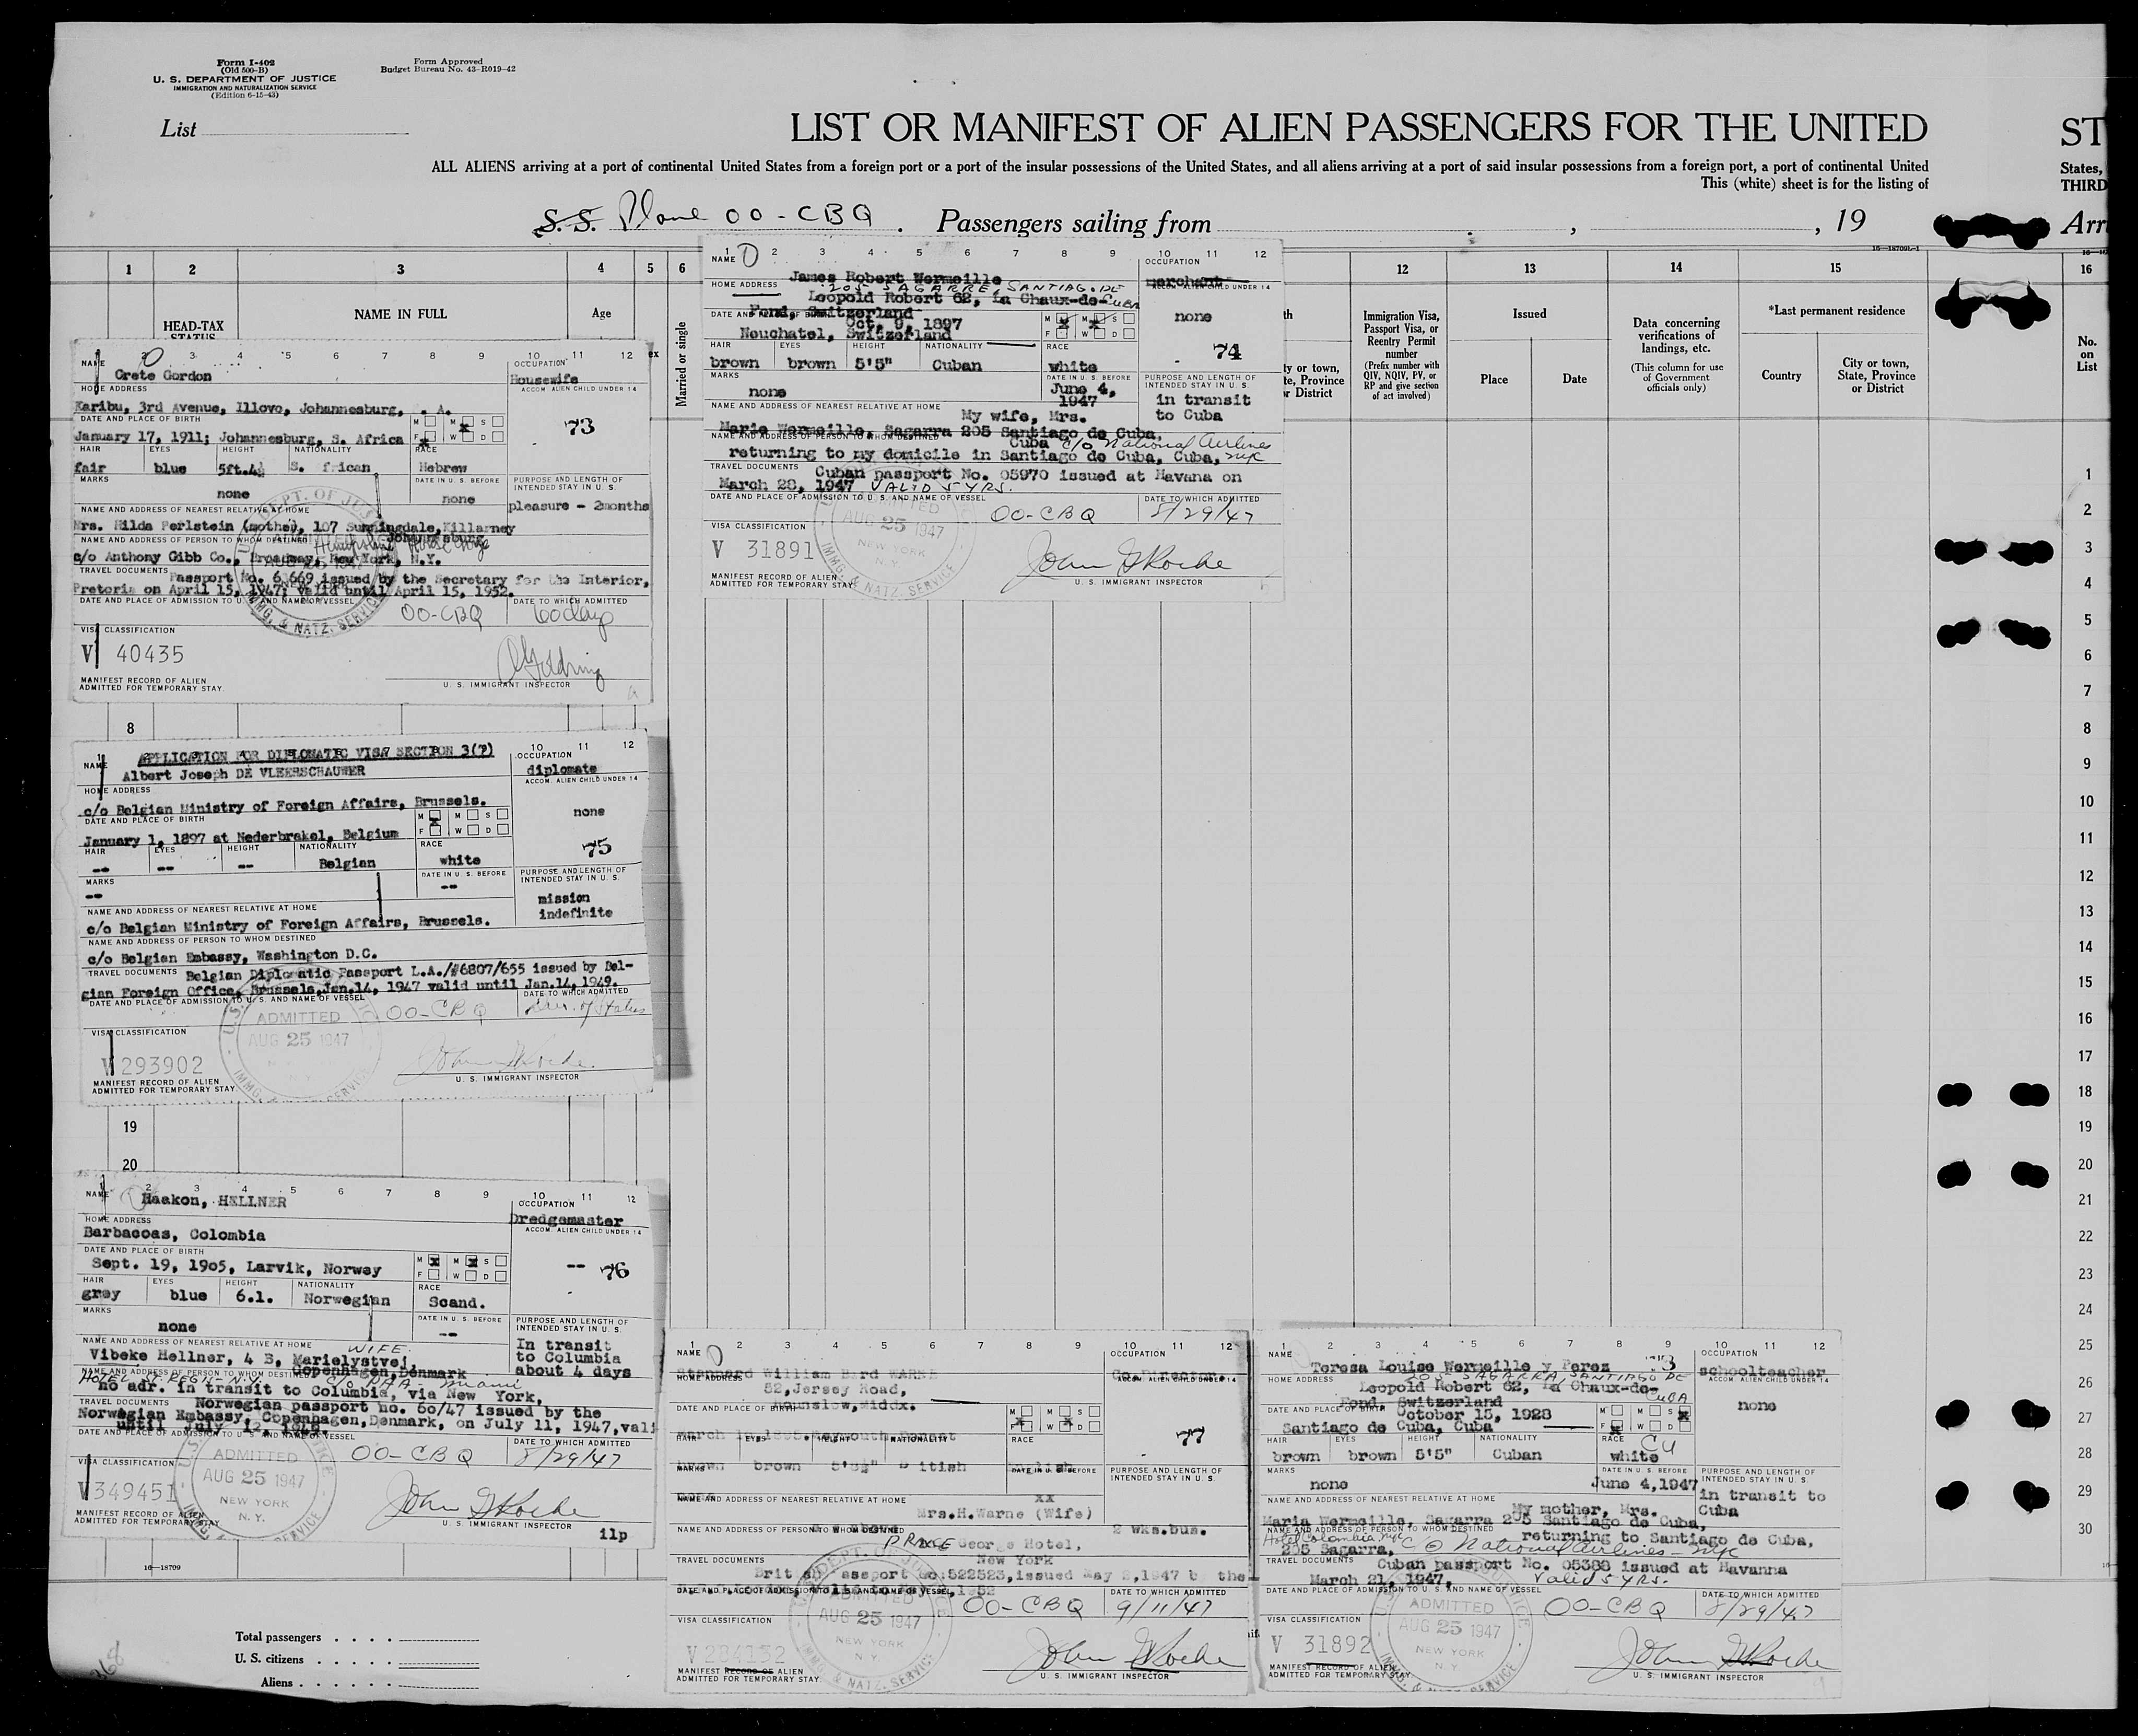 Form I-402
(Old 500-B)
U. S. DEPARTMENT OF JUSTICE
IMMIGRATION AND NATURALIZATION SERVICE
(Edition 6-15-43)
Form Approved
Budget Bureau No. 43-R019-42
List
LIST OR MANIFEST OF ALIEN PASSENGERS FOR THE UNITED
ST
ALL ALIENS arriving at a port of continental United States from a foreign port or a port of the insular possessions of the United States, and all aliens arriving at a port of said insular possessions from a foreign port, a port of continental United
States,
This (white) sheet is for the listing of
THIRD
S. S. Plane OO-CBQ . Passengers sailing from , , 19
Arr
16—18709L-1
1 2 3 4 5 6 12 13 14 15 16
HEAD-TAX
STATUS
NAME IN FULL
Age
Married or single
Immigration Visa,
Passport Visa, or
Reentry Permit
number
(Prefix number with
QIV, NQIV, PV, or
RP and give section
of act involved)
Issued
Place
Date
Data concerning
verifications of
landings, etc.
(This column for use
of Government
officials only)
*Last permanent residence
Country
City or town,
State, Province
or District
No.
on
List
1 2 3 4 5 6 7 8 9 10 11 12
NAME
Grete Gordon
OCCUPATION
Housewife
HOME ADDRESS
ACCOM. ALIEN CHILD UNDER 14
Karibu, 3rd Avenue, Illovo, Johannesburg, . A.
DATE AND PLACE OF BIRTH
January 17, 1911; Johannesburg, S. Africa
M M S
F W D
73
HAIR EYES HEIGHT NATIONALITY RACE
fair blue 5ft.4½ S. frican Hebrew
MARKS
none
DATE IN U. S. BEFORE
none
PURPOSE AND LENGTH OF
INTENDED STAY IN U. S.
pleasure - 2months
NAME AND ADDRESS OF NEAREST RELATIVE AT HOME
Mrs. Hilda Perlstein (mother), 107 Sunningdale, Killarney
Johannesburg
NAME AND ADDRESS OF PERSON TO WHOM DESTINED
c/o Anthony Gibb Co., Broadway, New York, N.Y.
TRAVEL DOCUMENTS
Passport No. 6 669 issued by the Secretary for the Interior,
Pretoria on April 15, 1947; valid until April 15, 1952.
DATE AND PLACE OF ADMISSION TO U. S. AND NAME OF VESSEL
OO-CBQ
DATE TO WHICH ADMITTED
60 days
VISA CLASSIFICATION
V 40435
MANIFEST RECORD OF ALIEN
ADMITTED FOR TEMPORARY STAY
U. S. IMMIGRANT INSPECTOR
1 2 3 4 5 6 7 8 9 10 11 12
NAME
James Robert Wermeille
OCCUPATION
merchant
HOME ADDRESS
ACCOM. ALIEN CHILD UNDER 14
205 SAGARRE, SANTIAGO DE
CUBA
Leopold Robert 62, La Chaux-de-
Fond, Switzerland
DATE AND PLACE OF BIRTH
Oct. 9, 1897
Neuchatel, Switzerland
M M S
F W D
none
74
HAIR EYES HEIGHT NATIONALITY RACE
brown brown 5'5" Cuban white
MARKS
none
DATE IN U. S. BEFORE
June 4,
1947
PURPOSE AND LENGTH OF
INTENDED STAY IN U. S.
in transit
to Cuba
NAME AND ADDRESS OF NEAREST RELATIVE AT HOME
My wife, Mrs.
Marie Wermeille, Sagarra 205 Santiago de Cuba,
Cuba
NAME AND ADDRESS OF PERSON TO WHOM DESTINED
c/o National Airlines
NYC
returning to my domicile in Santiago de Cuba, Cuba,
TRAVEL DOCUMENTS
Cuban passport No. 05970 issued at Havana on
March 28, 1947 VALID 5 YRS.
DATE AND PLACE OF ADMISSION TO U. S. AND NAME OF VESSEL
OO-CBQ
DATE TO WHICH ADMITTED
8/29/47
AUG 25 1947
NEW YORK
N. Y.
VISA CLASSIFICATION
V 31891
MANIFEST RECORD OF ALIEN
ADMITTED FOR TEMPORARY STAY
U. S. IMMIGRANT INSPECTOR
8
APPLICATION FOR DIPLOMATIC VISA SECTION 3(7)
10 11 12
NAME
Albert Joseph DE VLEESCHAUWER
OCCUPATION
diplomate
HOME ADDRESS
ACCOM. ALIEN CHILD UNDER 14
c/o Belgian Ministry of Foreign Affairs, Brussels.
none
DATE AND PLACE OF BIRTH
January 1, 1897 at Nederbrakel, Belgium
M M S
F W D
75
HAIR EYES HEIGHT NATIONALITY RACE
-- -- -- Belgian white
MARKS
--
DATE IN U. S. BEFORE
--
PURPOSE AND LENGTH OF
INTENDED STAY IN U. S.
mission
indefinite
NAME AND ADDRESS OF NEAREST RELATIVE AT HOME
c/o Belgian Ministry of Foreign Affairs, Brussels.
NAME AND ADDRESS OF PERSON TO WHOM DESTINED
c/o Belgian Embassy, Washington D.C.
TRAVEL DOCUMENTS
Belgian Diplomatic Passport L.A./#6807/655 issued by Bel-
gian Foreign Office, Brussels Jan.14, 1947 valid until Jan.14, 1949.
DATE AND PLACE OF ADMISSION TO U. S. AND NAME OF VESSEL
OO-CBQ
DATE TO WHICH ADMITTED
ADMITTED
AUG 25 1947
VISA CLASSIFICATION
V 293902
MANIFEST RECORD OF ALIEN
ADMITTED FOR TEMPORARY STAY
U. S. IMMIGRANT INSPECTOR
19
20
1 2 3 4 5 6 7 8 9 10 11 12
NAME
Haakon, HELLNER
OCCUPATION
Dredgemaster
HOME ADDRESS
ACCOM. ALIEN CHILD UNDER 14
Barbacoas, Colombia
DATE AND PLACE OF BIRTH
Sept. 19, 1905, Larvik, Norway
M M S
F W D
--
76
HAIR EYES HEIGHT NATIONALITY RACE
grey blue 6.1. Norwegian Scand.
MARKS
none
DATE IN U. S. BEFORE
--
PURPOSE AND LENGTH OF
INTENDED STAY IN U. S.
In transit
to Columbia
about 4 days
NAME AND ADDRESS OF NEAREST RELATIVE AT HOME
WIFE
Vibeke Hellner, 4 B, Marielystvej,
Copenhagen, Denmark
NAME AND ADDRESS OF PERSON TO WHOM DESTINED
HOTEL ST. REGIS - N.Y. c/o PAA - Miami
no adr. in transit to Columbia, via New York,
TRAVEL DOCUMENTS
Norwegian passport no. 60/47 issued by the
Norwegian Embassy, Copenhagen, Denmark, on July 11, 1947, vali
until July 12, 1948.
DATE AND PLACE OF ADMISSION TO U. S. AND NAME OF VESSEL
OO-CBQ
DATE TO WHICH ADMITTED
8/29/47
ADMITTED
AUG 25 1947
NEW YORK
N. Y.
VISA CLASSIFICATION
V 349451
MANIFEST RECORD OF ALIEN
ADMITTED FOR TEMPORARY STAY
U. S. IMMIGRANT INSPECTOR
11p
1 2 3 4 5 6 7 8 9 10 11 12
NAME
William Bard WARNE
OCCUPATION
HOME ADDRESS
ACCOM. ALIEN CHILD UNDER 14
52, Jersey Road,
Hounslow, Middx.
DATE AND PLACE OF BIRTH
M M S
F W D
77
HAIR EYES HEIGHT NATIONALITY RACE
brown brown
MARKS
DATE IN U. S. BEFORE
xx
PURPOSE AND LENGTH OF
INTENDED STAY IN U. S.
2 wks. bus.
NAME AND ADDRESS OF NEAREST RELATIVE AT HOME
Mrs. H. Warne (Wife)
NAME AND ADDRESS OF PERSON TO WHOM DESTINED
PRINCE George Hotel,
New York
TRAVEL DOCUMENTS
522523, issued May 2, 1947 b the
DATE AND PLACE OF ADMISSION TO U. S. AND NAME OF VESSEL
OO-CBQ
DATE TO WHICH ADMITTED
9/11/47
ADMITTED
AUG 25 1947
NEW YORK
N. Y.
VISA CLASSIFICATION
V 284152
MANIFEST RECORD OF ALIEN
ADMITTED FOR TEMPORARY STAY
U. S. IMMIGRANT INSPECTOR
1 2 3 4 5 6 7 8 9 10 11 12
NAME
Teresa Louise Wermeille y Perez
OCCUPATION
schoolteacher
HOME ADDRESS
ACCOM. ALIEN CHILD UNDER 14
205 SAGARRA, SANTIAGO DE
CUBA
Leopold Robert 62, La Chaux-de-
Fond, Switzerland
none
DATE AND PLACE OF BIRTH
October 15, 1928
Santiago de Cuba, Cuba
M M S
F W D
HAIR EYES HEIGHT NATIONALITY RACE
brown brown 5'5" Cuban white
MARKS
none
DATE IN U. S. BEFORE
June 4, 1947
PURPOSE AND LENGTH OF
INTENDED STAY IN U. S.
in transit to
Cuba
NAME AND ADDRESS OF NEAREST RELATIVE AT HOME
My mother, Mrs.
Maria Wermeille, Sagarra 205 Santiago de Cuba,
NAME AND ADDRESS OF PERSON TO WHOM DESTINED
returning to Santiago de Cuba,
Hotel Colombia NYC
205 Sagarra, c/o National Airlines - NYC
TRAVEL DOCUMENTS
Cuban passport No. 05388 issued at Havanna
March 21, 1947, Valid 5 yrs.
DATE AND PLACE OF ADMISSION TO U. S. AND NAME OF VESSEL
OO-CBQ
DATE TO WHICH ADMITTED
8/29/47
ADMITTED
AUG 25 1947
NEW YORK
N. Y.
VISA CLASSIFICATION
V 31892
MANIFEST RECORD OF ALIEN
ADMITTED FOR TEMPORARY STAY
U. S. IMMIGRANT INSPECTOR
1
2
3
4
5
6
7
8
9
10
11
12
13
14
15
16
17
18
19
20
21
22
23
24
25
26
27
28
29
30
16—18709
Total passengers
U. S. citizens
Aliens
368